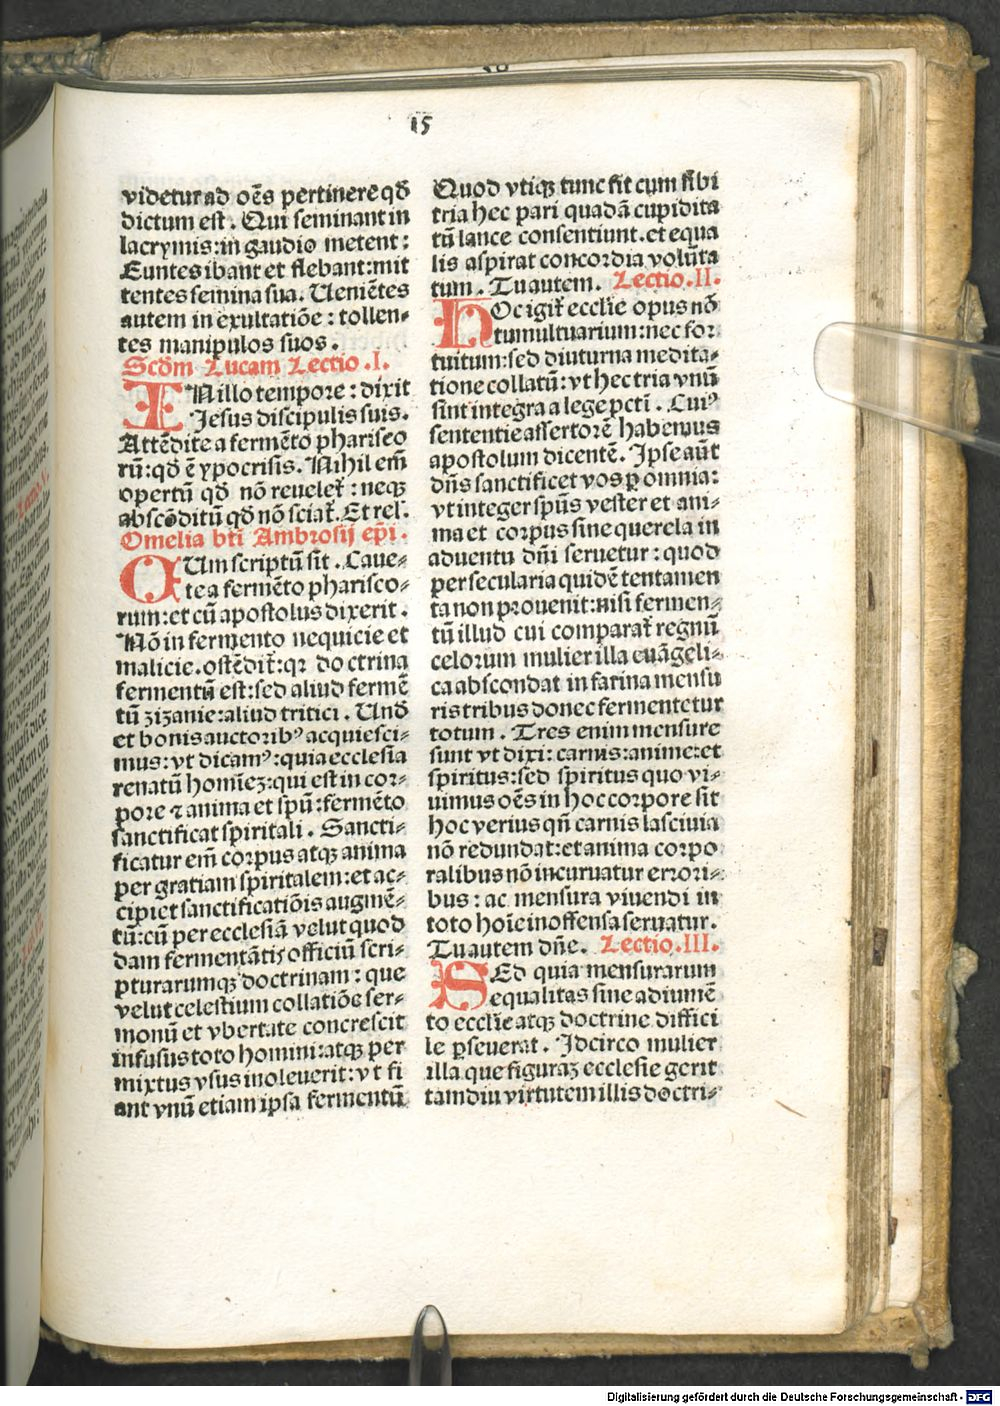 15
videtur ad oēs pertinere qđ
dictum est. Qui seminant in
lacrymis: in gaudio metent:
Euntes ibant et flebant: mit
tentes semina sua. Ueniētes
autem in exultatiōe: tollen-
tes manipulos suos.
Scđm Lucam Lectio .I.
IN illo tempore: dixit
Jesus discipulis suis.
Attēdite a fermēto phariseo
rū: qđ ē ypocrisis. Nihil em̄
opertū qđ nō reuelet̄: neqꝫ
abscōditū qđ nō sciat̄. Et rel'.
Omelia bti Ambrosij ep̄i.
CUm scriptū sit. Caue-
te a fermēto phariseo-
rum: et cū apostolus dixerit.
Nō in fermento nequicie et
malicie. ostēdit̄: qꝛ doctrina
fermentū est: sed aliud fermē
tū zizanie: aliud tritici. Unđ
et bonis auctoribꝰ acquiesci-
mus: vt dicamꝰ: quia ecclesia
renatū homīeꝫ: qui est in cor-
pore ⁊ anima et spū: fermēto
sanctificat spiritali. Sancti-
ficatur em̄ corpus atqꝫ anima
per gratiam spiritalem: et ac-
cipiet sanctificatiōis augmē-
tū: cū per ecclesiā velut quod
dam fermentātis officiū scri-
pturarumqꝫ doctrinam: que
velut celestium collatiōe ser-
monū et vbertate concrescit
infusus toto homini: atqꝫ per
mixtus vsus inoleuerit: vt fi
ant vnū etiam ipsa fermentū
Quod vtiqꝫ tunc fit cum sibi
tria hec pari quadā cupidita
tū lance consentiunt. et equa
lis aspirat concordia volūta
tum. Tu autem. Lectio .II.
HOc igit̄ ecclīe opus nō
tumultuarium: nec for
tuitum: sed diuturna medita-
tione collatū: vt hec tria vnū
sint integra a lege pcti. Cuiꝰ
sententie assertorē habemus
apostolum dicentē. Ipse aūt
dn̄s sanctificet vos ꝑ omnia:
vt integer spūs vester et ani-
ma et corpus sine querela in
aduentu dn̄i seruetur: quod
per secularia quidē tentamen
ta non prouenit: nisi fermen-
tū illud cui comparat̄ regnū
celorum mulier illa euāgeli-
ca abscondat in farina mensu
ris tribus donec fermentetur
totum. Tres enim mensure
sunt vt dixi: carnis: anime: et
spiritus: sed spiritus quo vi-
uimus oēs in hoc corpore sit
hoc verius qn̄ carnis lasciuia
nō redundat: et anima corpo
ralibus nō incuruatur errori-
bus: ac mensura viuendi in
toto hoīe inoffensa seruatur.
Tu autem dn̄e. Lectio .III.
SEd quia mensurarum
equalitas sine adiumē
to ecclīe atqꝫ doctrine diffici
le ꝑseuerat. Idcirco mulier
illa que figuraꝫ ecclesie gerit
tamdiu virtutem illis doctri-
Digitalisierung gefördert durch die Deutsche Forschungsgemeinschaft - DFG